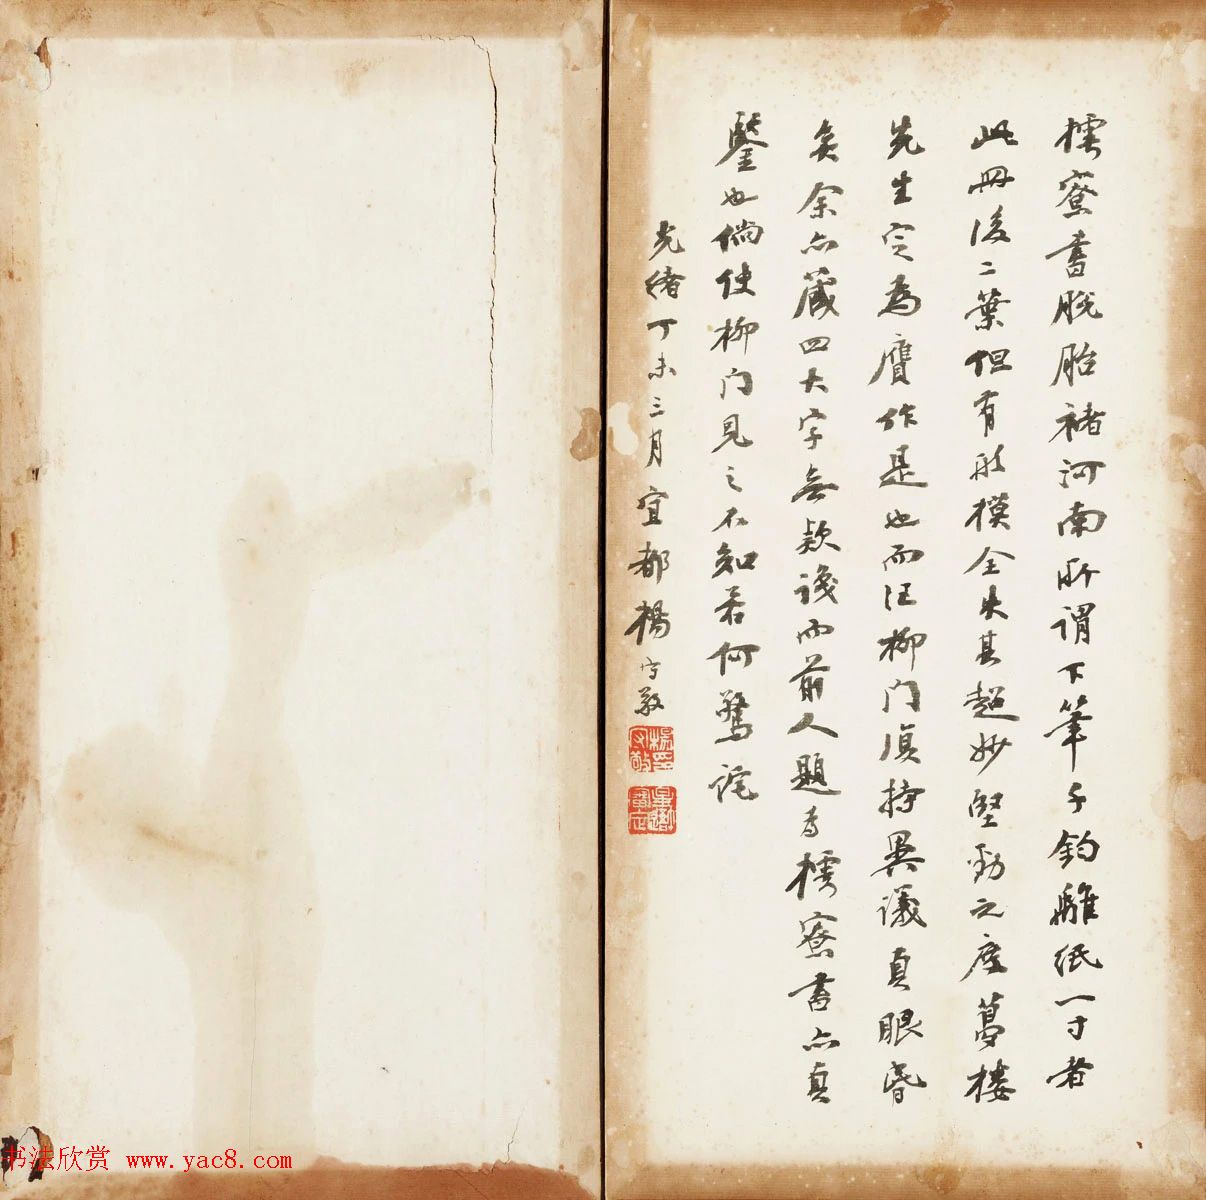 樗寮書脫胎褚河南所謂下筆千鈞離紙一寸者
此冊後二葉但有形模全失其超妙堅勁之度夢樓
先生定為贋作是也而汪柳門傎持異議真眼昏
矣余亦藏四大字無款識而前人題為樗寮書亦真
鑒也倘使柳門見之不知若何驚詫
光緒丁未三月宜都楊守敬
书法欣赏 www.yac8.com